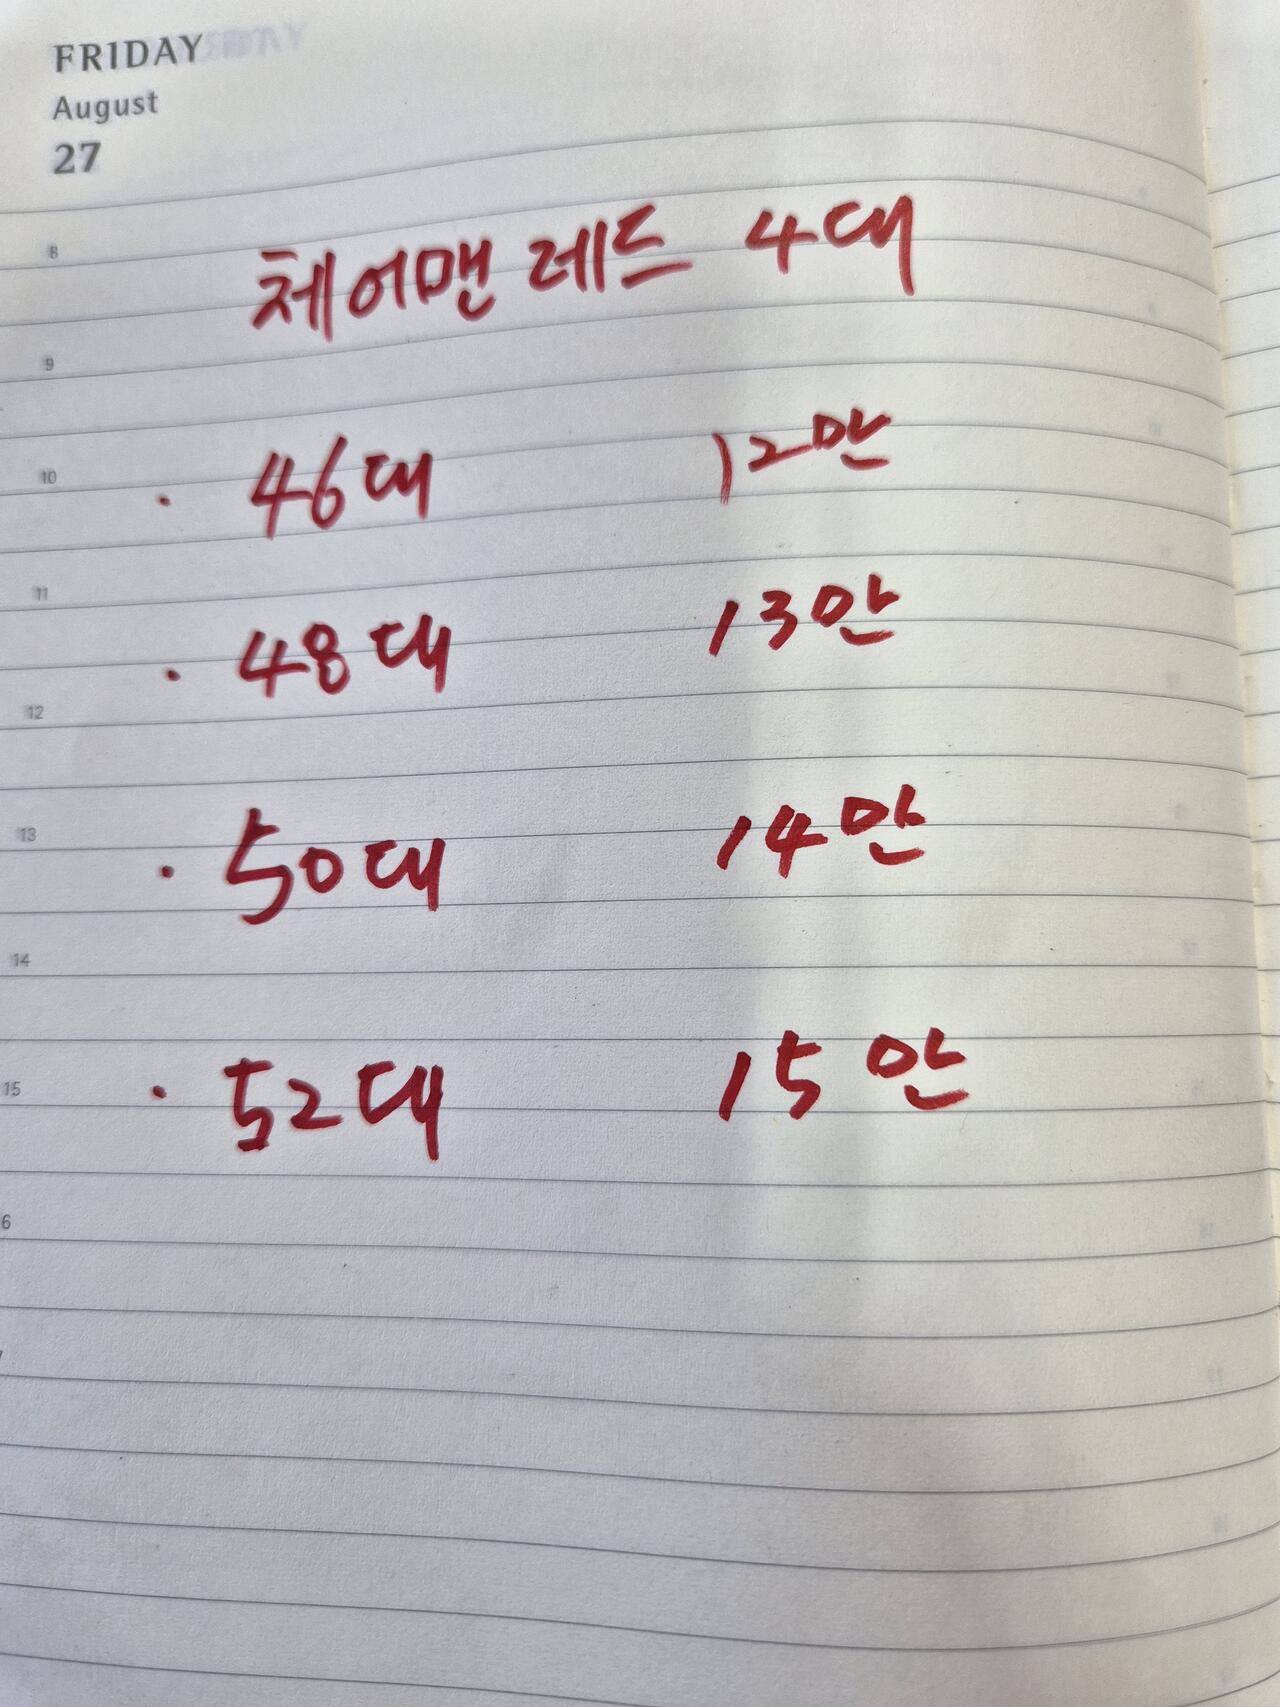 FRIDAY
August
27
8
체어맨 레드 4대
9
10
· 46대 12만
11
· 48대 13만
12
13
· 50대 14만
14
15
· 52대 15만
6